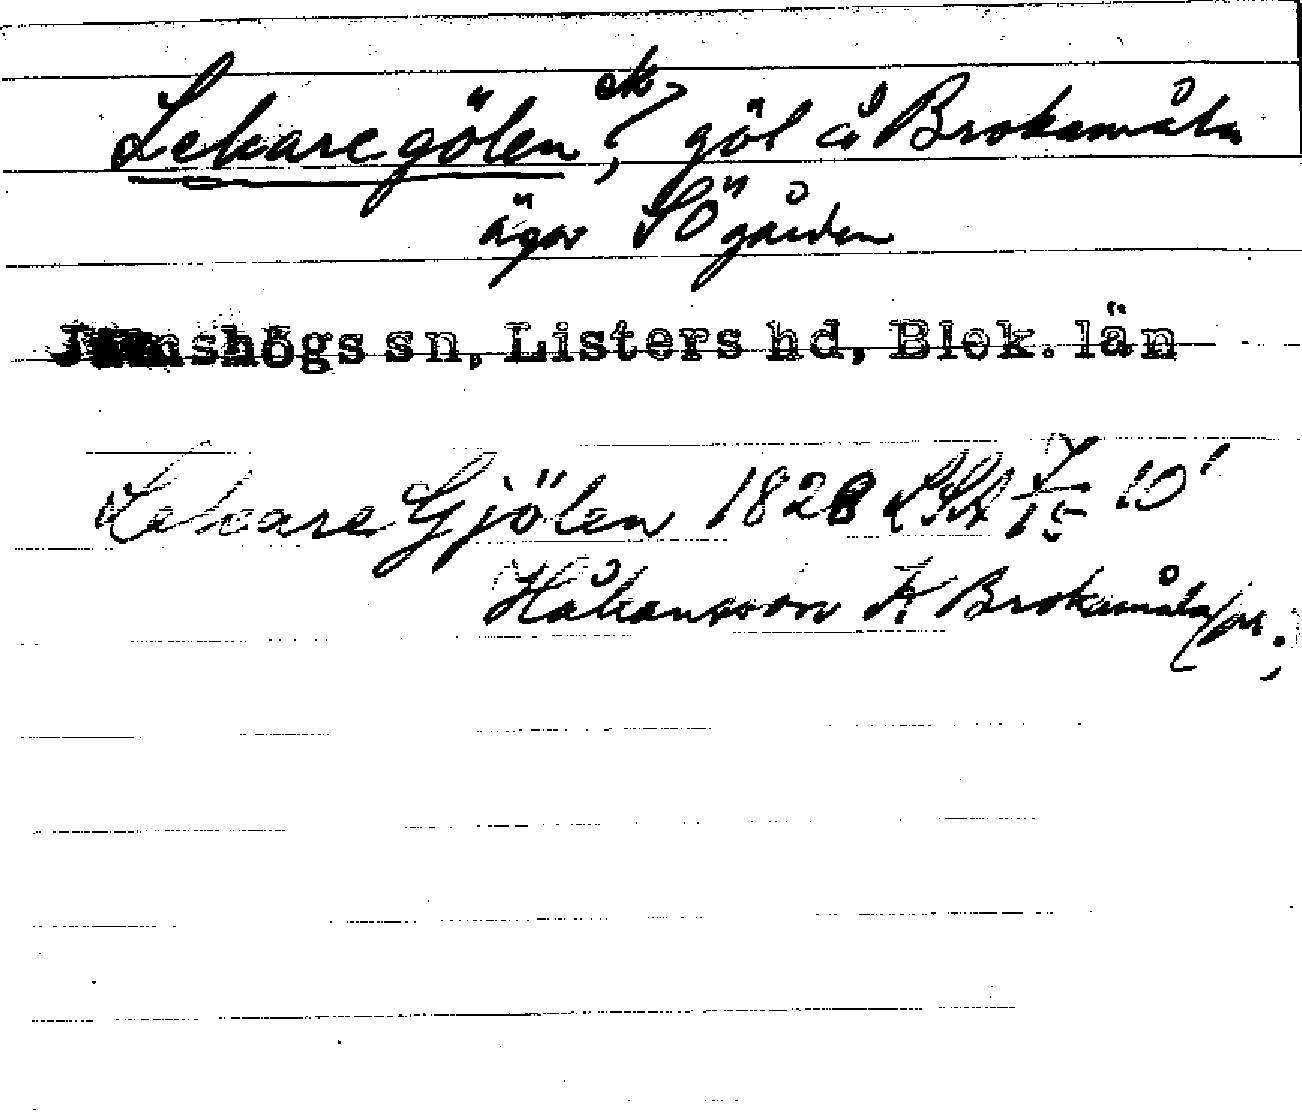 Lekaregölen, sk, göl å Brokamåla
ägor Sögården
Jämshögs sn, Listers hd, Blek. län
Lekare Gjölen 1828 LSA 10'
Håkansson K Brokamåla